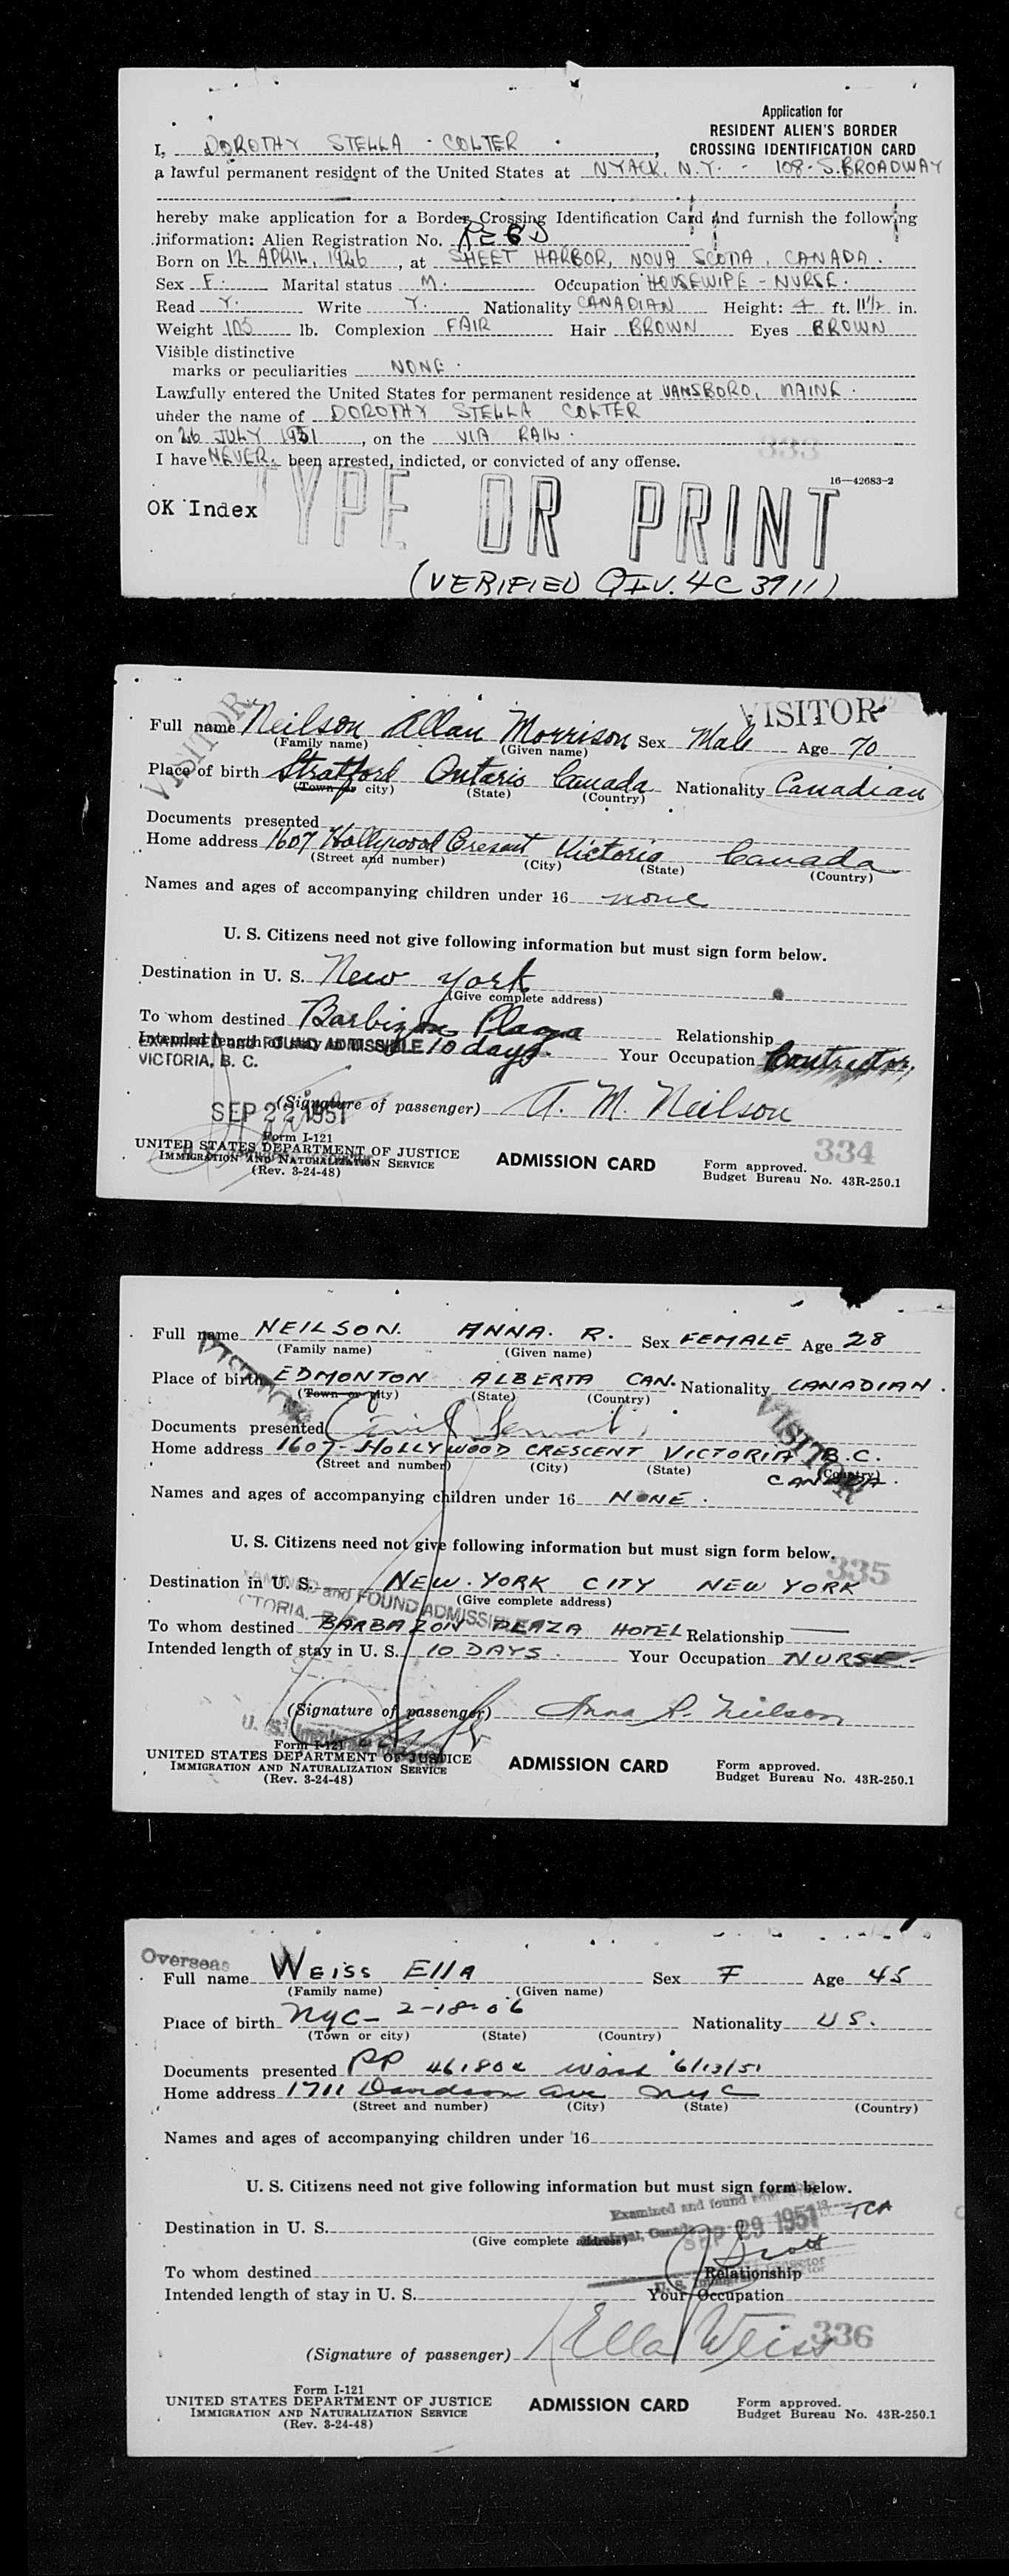 Application for
RESIDENT ALIEN'S BORDER
CROSSING IDENTIFICATION CARD
I, DOROTHY STELLA COLTER,
a lawful permanent resident of the United States at NYACK, N.Y. - 108-S.BROADWAY
hereby make application for a Border Crossing Identification Card and furnish the following
information: Alien Registration No.
Born on 12 APRIL, 1926, at SHEET HARBOR, NOVA SCOTIA, CANADA.
Sex F. Marital status M. Occupation HOUSEWIFE - NURSE.
Read Y. Write Y. Nationality CANADIAN Height: 4 ft. 11 1/2 in.
Weight 105 lb. Complexion FAIR Hair BROWN Eyes BROWN
Visible distinctive
marks or peculiarities NONE.
Lawfully entered the United States for permanent residence at VANSBORO, MAINE.
under the name of DOROTHY STELLA COLTER
on 26 JULY 1951, on the VIA RAIL.
333
I have NEVER. been arrested, indicted, or convicted of any offense.
16—42683-2
OK Index
TYPE OR PRINT
(VERIFIED 4C 3911)
VISITOR
VISITOR
Full name Neilson Allan Morrison Sex Male Age 70
(Family name) (Given name)
Place of birth Stratford Ontario Canada Nationality Canadian
(Town or city) (State) (Country)
Documents presented
Home address 1607 Hollywood Cresent Victoria Canada
(Street and number) (City) (State) (Country)
Names and ages of accompanying children under 16 none
U. S. Citizens need not give following information but must sign form below.
Destination in U. S. New York
(Give complete address)
To whom destined Barbizon Plaza Relationship
Intended length of stay in U. S. 10 days. Your Occupation Contractor,
EXAMINED and FOUND ADMISSIBLE
VICTORIA, B. C.
SEP 22 1951
(Signature of passenger) A. M. Neilson
Form I-121
UNITED STATES DEPARTMENT OF JUSTICE
IMMIGRATION AND NATURALIZATION SERVICE
(Rev. 3-24-48)
ADMISSION CARD
334
Form approved.
Budget Bureau No. 43R-250.1
Full name NEILSON. ANNA. R. Sex FEMALE Age 28
(Family name) (Given name)
VISITOR
Place of birth EDMONTON ALBERTA CAN. Nationality CANADIAN.
(Town or city) (State) (Country)
VISITOR
Documents presented
Home address 1607-HOLLYWOOD CRESCENT VICTORIA B.C.
(Street and number) (City) (State) (Country)
CANADA.
Names and ages of accompanying children under 16 NONE.
U. S. Citizens need not give following information but must sign form below.
335
Destination in U. S. NEW. YORK CITY NEW YORK
(Give complete address)
EXAMINED and FOUND ADMISSIBLE
VICTORIA, B.
To whom destined BARBAZON PLAZA HOTEL Relationship
Intended length of stay in U. S. 10 DAYS. Your Occupation NURSE
(Signature of passenger) Anna R. Neilson
Form I-121
UNITED STATES DEPARTMENT OF JUSTICE
IMMIGRATION AND NATURALIZATION SERVICE
(Rev. 3-24-48)
ADMISSION CARD
Form approved.
Budget Bureau No. 43R-250.1
Overseas
Full name WEISS Ella Sex F Age 45
(Family name) (Given name)
Place of birth NYC- 2-18-06 Nationality US.
(Town or city) (State) (Country)
Documents presented PP 461802 Wash 6/13/51
Home address 1711 Davidson ave NYC
(Street and number) (City) (State) (Country)
Names and ages of accompanying children under 16
U. S. Citizens need not give following information but must sign form below.
Examined and found
Montreal, Canada SEP 29 1951 TCA
Destination in U. S.
(Give complete address)
To whom destined Relationship
U. S. Immigrant Inspector
Intended length of stay in U. S. Your Occupation
336
(Signature of passenger) Ella Weiss
Form I-121
UNITED STATES DEPARTMENT OF JUSTICE
IMMIGRATION AND NATURALIZATION SERVICE
(Rev. 3-24-48)
ADMISSION CARD
Form approved.
Budget Bureau No. 43R-250.1